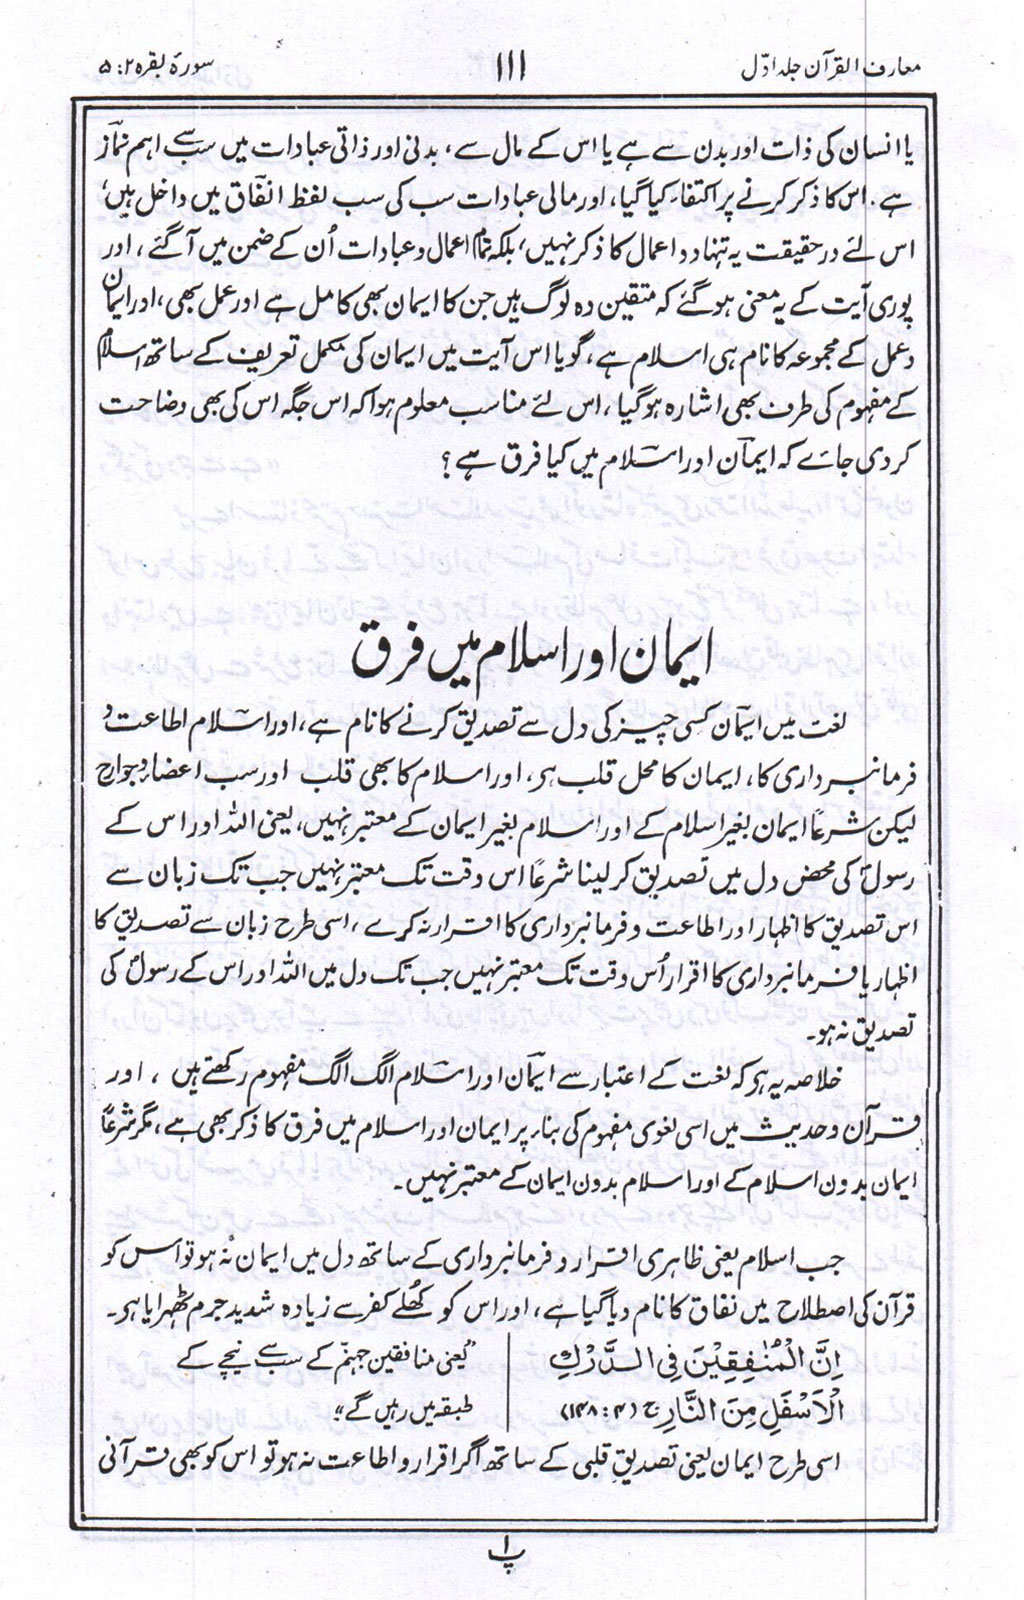 معارف القرآن جلد اوّل
۱۱۱
سورۂ بقرہ ۲: ۵
یا انسان کی ذات اور بدن سے ہے یا اس کے مال سے، بدنی اور ذاتی عبادات میں سب سے اہم نماز
ہے، اس کا ذکر کرنے پر اکتفاء کیا گیا، اور مالی عبادات سب کی سب لفظ انفاق میں داخل ہیں،
اس لئے درحقیقت یہ تنہا دو اعمال کا ذکر نہیں، بلکہ تمام اعمال و عبادات اُن کے ضمن میں آگئے، اور
پوری آیت کے یہ معنی ہو گئے کہ متقین وہ لوگ ہیں جن کا ایمان بھی کامل ہے اور عمل بھی، اور ایمان
و عمل کے مجموعہ کا نام ہی اسلام ہے، گویا اس آیت میں ایمان کی مکمل تعریف کے ساتھ اسلام
کے مفہوم کی طرف بھی اشارہ ہو گیا، اس لئے مناسب معلوم ہوا کہ اس جگہ اس کی بھی وضاحت
کر دی جائے کہ ایمان اور اسلام میں کیا فرق ہے؟
ایمان اور اسلام میں فرق
لغت میں ایمان کسی چیز کی دل سے تصدیق کرنے کا نام ہے، اور اسلام اطاعت و
فرمانبرداری کا، ایمان کا محل قلب ہے، اور اسلام کا بھی قلب اور سب اعضاء و جوارح
لیکن شرعاً ایمان بغیر اسلام کے اور اسلام بغیر ایمان کے معتبر نہیں، یعنی اللہ اور اس کے
رسولؐ کی محض دل میں تصدیق کر لینا شرعاً اس وقت تک معتبر نہیں جب تک زبان سے
اس تصدیق کا اظہار اور اطاعت و فرمانبرداری کا اقرار نہ کرے، اسی طرح زبان سے تصدیق کا
اظہار یا فرمانبرداری کا اقرار اُس وقت تک معتبر نہیں جب تک دل میں اللہ اور اس کے رسولؐ کی
تصدیق نہ ہو۔
خلاصہ یہ ہے کہ لغت کے اعتبار سے ایمان اور اسلام الگ الگ مفہوم رکھتے ہیں، اور
قرآن و حدیث میں اسی لغوی مفہوم کی بناء پر ایمان اور اسلام میں فرق کا ذکر بھی ہے، مگر شرعاً
ایمان بدون اسلام کے اور اسلام بدون ایمان کے معتبر نہیں۔
جب اسلام یعنی ظاہری اقرار و فرمانبرداری کے ساتھ دل میں ایمان نہ ہو تو اس کو
قرآن کی اصطلاح میں نفاق کا نام دیا گیا ہے، اور اس کو کھلے کفر سے زیادہ شدید جرم ٹھہرایا ہے۔
اِنَّ الْمُنٰفِقِیْنَ فِی الدَّرْكِ
الْاَسْفَلِ مِنَ النَّارِ ج (۴: ۱۴۸)
”یعنی منافقین جہنّم کے سب سے نیچے کے
طبقہ میں رہیں گے“
اسی طرح ایمان یعنی تصدیقِ قلبی کے ساتھ اگر اقرار و اطاعت نہ ہو تو اس کو بھی قرآنی
پا